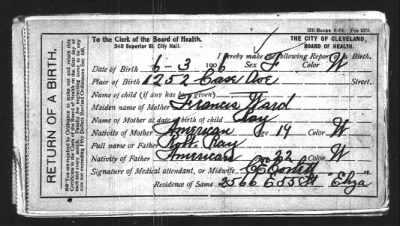 300 Books 8-04. File 1678.
To the Clerk of the Board of Health.
340 Superior St. City Hall.
THE CITY OF CLEVELAND,
BOARD OF HEALTH.
I hereby make the following Report of Birth.
Date of Birth 6-3 1906 Sex F Color W
Place of Birth 1252 Case Ave Street.
Name of child (if any has been given)
Maiden name of Mother Francis Ward
Name of Mother at date of birth of child Ray
Nativity of Mother American Age 19 Color W
Full name of Father Robt. Ray
Nativity of Father American 22 Color W
Signature of Medical attendant, or Midwife,
Residence of Same 2566 E 55 St "Eliza"
RETURN OF A BIRTH.